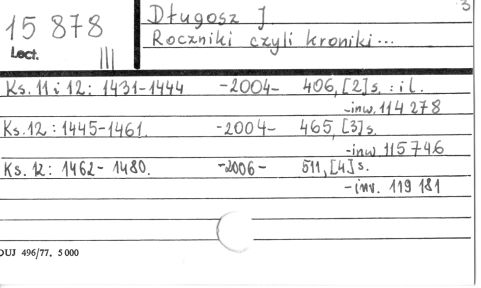 3
15 878
Lect.
III
Długosz J
Roczniki czyli kroniki...
Ks. 11 i 12: 1431-1444 -2004- 406, [2] s. : il.
-inw. 114 278
Ks. 12: 1445-1461. -2004- 465, [3] s.
-inw. 115 746
Ks. 12: 1462-1480. -2006- 511, [4] s.
-inv. 119 181
DUJ 496/77, 5 000